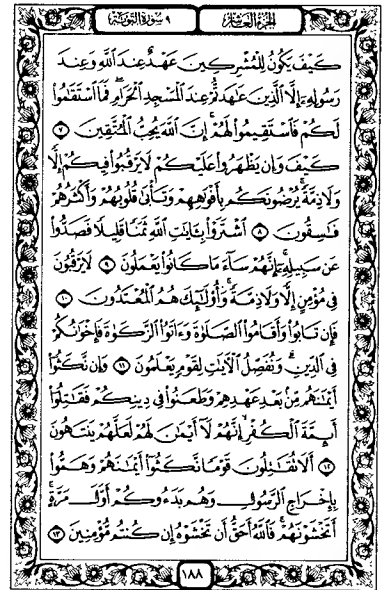 الجزء العاشر
٩ سورة التوبة
كَيْفَ يَكُونُ لِلْمُشْرِكِينَ عَهْدٌ عِندَ اللَّهِ وَعِندَ
رَسُولِهِ إِلَّا الَّذِينَ عَاهَدتُّمْ عِندَ الْمَسْجِدِ الْحَرَامِ فَمَا اسْتَقَامُوا
لَكُمْ فَاسْتَقِيمُوا لَهُمْ إِنَّ اللَّهَ يُحِبُّ الْمُتَّقِينَ ٧
كَيْفَ وَإِن يَظْهَرُوا عَلَيْكُمْ لَا يَرْقُبُوا فِيكُمْ إِلًّا
وَلَا ذِمَّةً يُرْضُونَكُم بِأَفْوَاهِهِمْ وَتَأْبَىٰ قُلُوبُهُمْ وَأَكْثَرُهُمْ
فَاسِقُونَ ٨ اشْتَرَوْا بِآيَاتِ اللَّهِ ثَمَنًا قَلِيلًا فَصَدُّوا
عَن سَبِيلِهِ إِنَّهُمْ سَاءَ مَا كَانُوا يَعْمَلُونَ ٩ لَا يَرْقُبُونَ
فِي مُؤْمِنٍ إِلًّا وَلَا ذِمَّةً وَأُولَٰئِكَ هُمُ الْمُعْتَدُونَ ١٠
فَإِن تَابُوا وَأَقَامُوا الصَّلَوٰةَ وَآتَوُا الزَّكَوٰةَ فَإِخْوَانُكُمْ
فِي الدِّينِ وَنُفَصِّلُ الْآيَاتِ لِقَوْمٍ يَعْلَمُونَ ١١ وَإِن نَّكَثُوا
أَيْمَانَهُم مِّن بَعْدِ عَهْدِهِمْ وَطَعَنُوا فِي دِينِكُمْ فَقَاتِلُوا
أَئِمَّةَ الْكُفْرِ إِنَّهُمْ لَا أَيْمَانَ لَهُمْ لَعَلَّهُمْ يَنتَهُونَ
١٢ أَلَا تُقَاتِلُونَ قَوْمًا نَّكَثُوا أَيْمَانَهُمْ وَهَمُّوا
بِإِخْرَاجِ الرَّسُولِ وَهُم بَدَءُوكُمْ أَوَّلَ مَرَّةٍ
أَتَخْشَوْنَهُمْ فَاللَّهُ أَحَقُّ أَن تَخْشَوْهُ إِن كُنتُم مُّؤْمِنِينَ ١٣
١٨٨